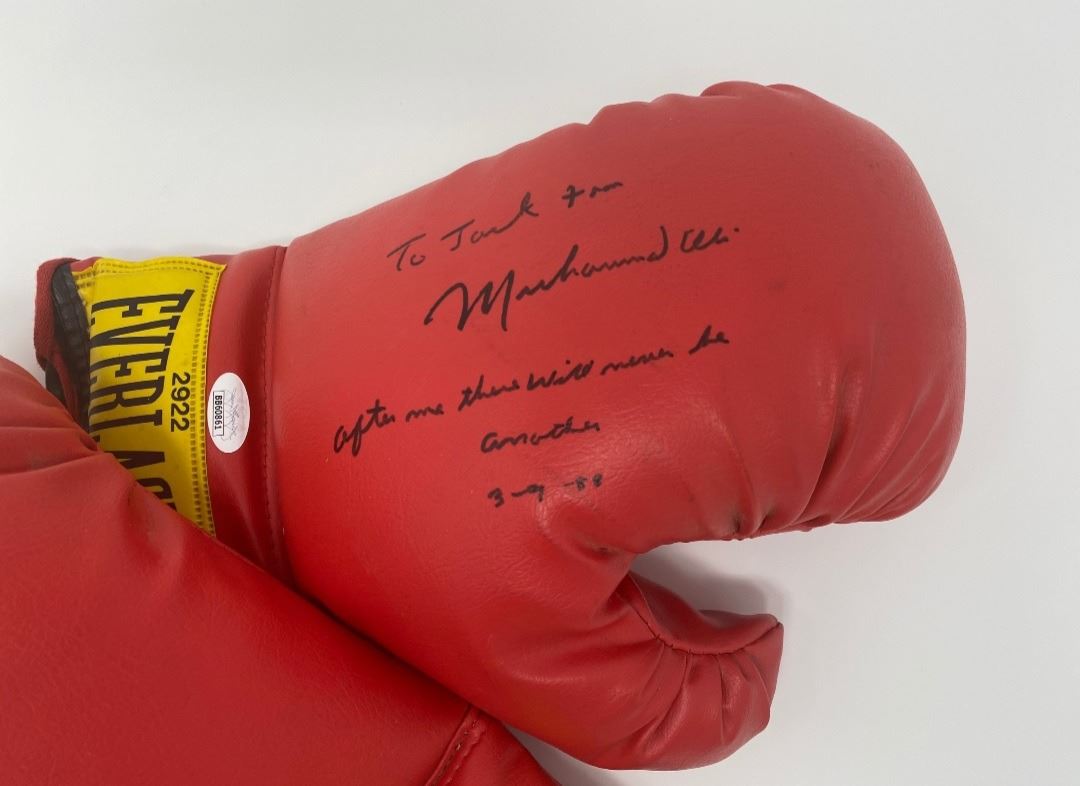 To Jack from
Muhammad Ali
after me there will never be
another
3-9-88
EVERLAST
2922
BB60861